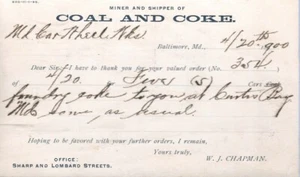 MINER AND SHIPPER OF
COAL AND COKE.
Baltimore, Md., 4/20th 1900
Dear Sir:—I have to thank you for your valued order (No. 354
4/20. Five (5) Cars
foundry coke to you at Curtis Bay
Md same, as usual.
Hoping to be favored with your further orders, I remain,
Yours truly,
W. J. CHAPMAN.
OFFICE:
SHARP AND LOMBARD STREETS.